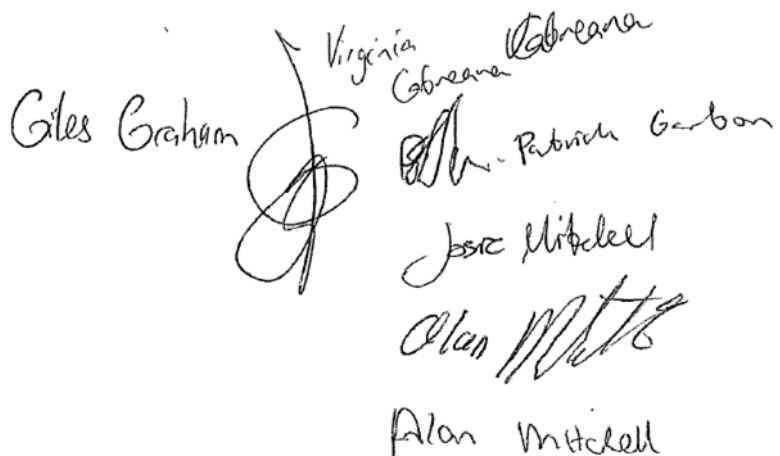 Giles Graham
Virginia
Cabreana VCabreana
Patrick Garbon
Josie Mitchell
Alan
Alan Mitchell